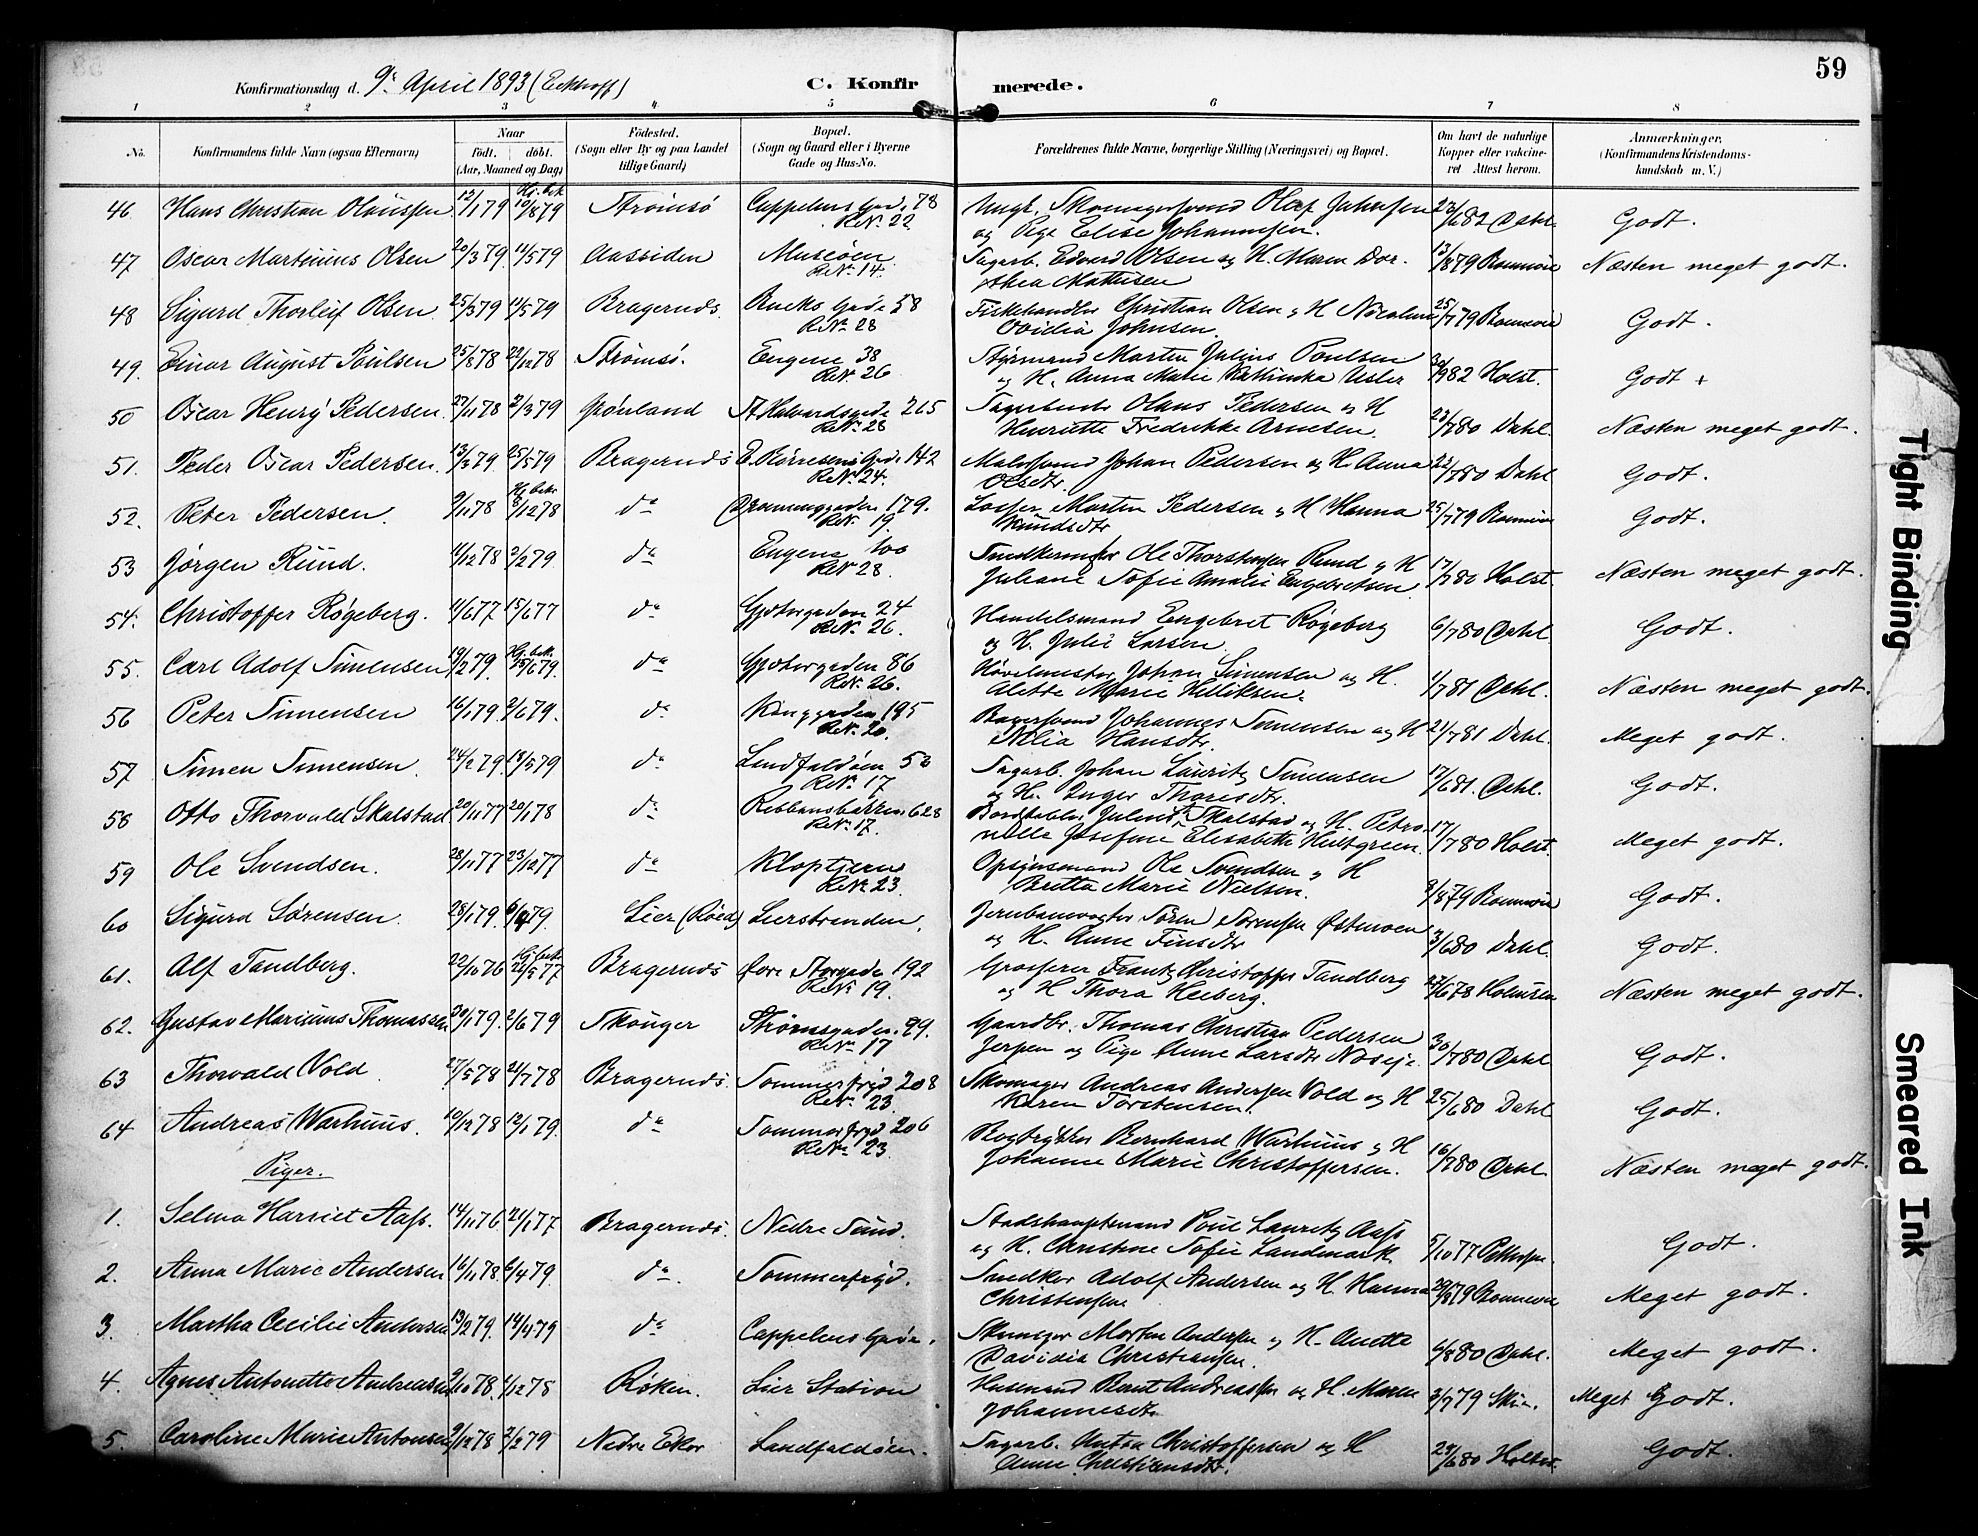 59
Konfirmationsdag d. 9de April 1893 (Eckhoff)
C. Konfirmerede.
1 2 3 4 5 6 7 8
No. Konfirmandens fulde Navn (ogsaa Efternavn) Naar Født. døbt. (Aar, Maaned og Dag) Fødested. (Sogn eller By og paa Landet tillige Gaard) Bopæl. (Sogn og Gaard eller i Byerne Gade og Hus-No. Forældrenes fulde Navne, borgerlige Stilling (Næringsvei) og Bopæl. Om havt de naturlige Kopper eller vakcineret Attest herom. Anmærkninger, (Konfirmandens Kristendomskundskab m. V.)
46 Hans Christian Olaussen 12/1 79 Hj. bek. 10/8 79 Strømsø Cappelens Gade 78 Ungk. Skomagersvend Olaf Johnsen 23/6 82 Dahl Godt.
R.No. 22 og Pige Elise Johannesen.
47 Oscar Martinius Olsen 20/3 79 11/5 79 Aassiden Museøen Sagarb. Edvard Olsen og H. Maren Dor- 13/8 79 Næsten meget godt.
R.No. 14. thea Mathisen
48 Sigurd Thorleif Olsen 25/3 79 11/5 79 Bragernæs Bucks Gade 58 Fiskehandler Christian Olsen og H Nicoline 25/7 79 Godt.
R.No. 28 Ovidia Johnsen.
49. Einar August Poulsen 25/8 78 22/12 78 Strømsø. Engene 38 Styrmand Martin Julius Poulsen Godt
R.No. 26 og H. Anna Marie Kathinka Usler 9 82 Holst.
50 Oscar Henry Pedersen. 27/11 78 2/3 79 Grønland St. Halvardsgade 265 Sagarbeider Olaus Pedersen og H
R.No. 28 Henriette Fredrikke Arnesen. 23/7 80 Dahl. Næsten meget godt.
51. Peder Oscar Pedersen. 13/3 79 25/5 79 Bragernæs E. Børresens Gade 142 Malersvend Johan Pedersen og H. Anna 22/7 80 Dahl Godt.
R.No. 24. Olsdtr.
52. Peter Pedersen. 9/11 78 Hj. bek. 8/12 78 do Dronninggaden 179. Losser Martin Pedersen og H Hanna 25/7 79 Godt.
R.No. 19. Knudsdtr
53 Jørgen Rund. 11/12 78 2/2 79 do Engene 100 Snedkermester Ole Thorstensen Rund og H 17/7 80 Holst Næsten meget godt.
R.No. 28 Juliane Sofie Amalie Engebretsen.
54. Christoffer Røgeberg. 11/6 77 15/6 77 do Gjetergaden 24 Handelsmand Engebret Røgeberg 6/7 80 Dahl Godt.
R.No. 26. og H. Julie Larsen.
55. Carl Adolf Simensen 19/2 79. Hj. bek. 15/6 79. do Gjetergaden 86 Høvelmester Johan Simensen og H.
R.No. 26. Alette Marie Helliksen. 1/7 81 Dahl. Næsten meget godt.
56 Peter Simensen 16/1 79 2/6 79. do Konggaden 195 Bagersvend Johannes Simensen og H 21/7 81 Dahl. Meget godt.
R.No. 20. Nilia Hansdtr.
57 Simen Simensen. 24/2 79. 18/5 79 do Landfaldøen 50 Sagarb. Johan Lauritz Simensen 17/6 81. Dahl. Godt.
R.No. 17 og H. Inger Thoresdtr.
58 Otto Thorvald Skalstad 20/11 77 20/1 78 do Rebbansbakken 628 Julius Skalstad og H. Petro- 17/7 80 Holst. Meget godt.
R.No. 17. nelle Josefine Elisabeth Hultgreen.
59 Ole Svendsen. 28/11 77 23/12 77 do Kloptjern Opsynsmand Ole Svendsen og H
R.No. 23 Britta Marie Nielsen. 3/8 79 Godt.
60 Sigurd Sørensen. 28/1 79. 6/4 79. Lier (Røed) Lierstranden. Jernbanevogter Søren Sørensen Østenoen
og H. Anne Finsdtr 3/6 80 Dahl. Godt.
61. Alf Tandberg. 22/10 76 Hj. bek. 22/5 77 Bragernæs Øvre Storgade 192 Grosserer Frantz Christoffer Tandberg
R.No. 19. og H Thora Heiberg. 27/6 78 Holmsen Næsten meget godt.
62. Gustav Marinius Thomassen 20/1 79. 2/6 79 Skouger Strømsgaden. 99. Gaardbr. Thomas Christian Pedersen
R.No. 17 Jerpen og Pige Anne Larsdtr 30/7 80 Dahl Godt.
63 Thorvald Vold 27/5 78 21/7 78 Bragernæs. Sommerfryd 208 Skomager Andreas Andersen Vold og H 25/6 80 Dahl Godt.
R.No. 23. Karen Torstensen.
64 Andreas Warhuus. 10/12 78 12/1 79. do Sommerfryd 206 Bogtrykker Bernhard Warhuus og H
R.No. 23. Johanne Marie Christoffersen. 16/7 80 Dahl Næsten meget godt.
Piger.
1. Selma Harriet Aass. 14/11 76 21/1 77 Bragernæs. Nedre Sund. Stadshauptmand Poul Lauritz Aass
og H. Christine Sofie Landmark 5/10 77 Godt.
2. Anna Marie Andersen 16/11 78. 6/4 79. do. Sommerfryd. Snedker Adolf Andersen og H. Hanna
Christensen 29/8 79 Meget godt.
3. Martha Cecilie Andersen 13/2 79. 14/4 79 do Cappelens Gade. Skomager Morten Andersen og H. Anette
Davidia Christiansen. 6/8 80 Dahl. Meget godt.
4. Agnes Antonette Andreasen 9/10 78. 1/12 78 Røken. Lier Station Husmand Bernt Andreassen og H. Maren
Johannesdtr 3/7 79 Meget Godt.
5. Caroline Marie Antonsen 9/12 78 2/2 79 Nedre Eker Landfaldøen. Sagarb. Anton Christoffersen og H
Anne Christiansdtr. 24/6 80 Godt.
Tight Binding
Smeared Ink